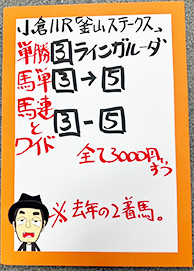 小倉11R「釜山ステークス」
単勝 3 ラインガルーダ
馬単 3 → 5
馬連とワイド 3 - 5
全て3000円ずつ
※去年の2着馬。